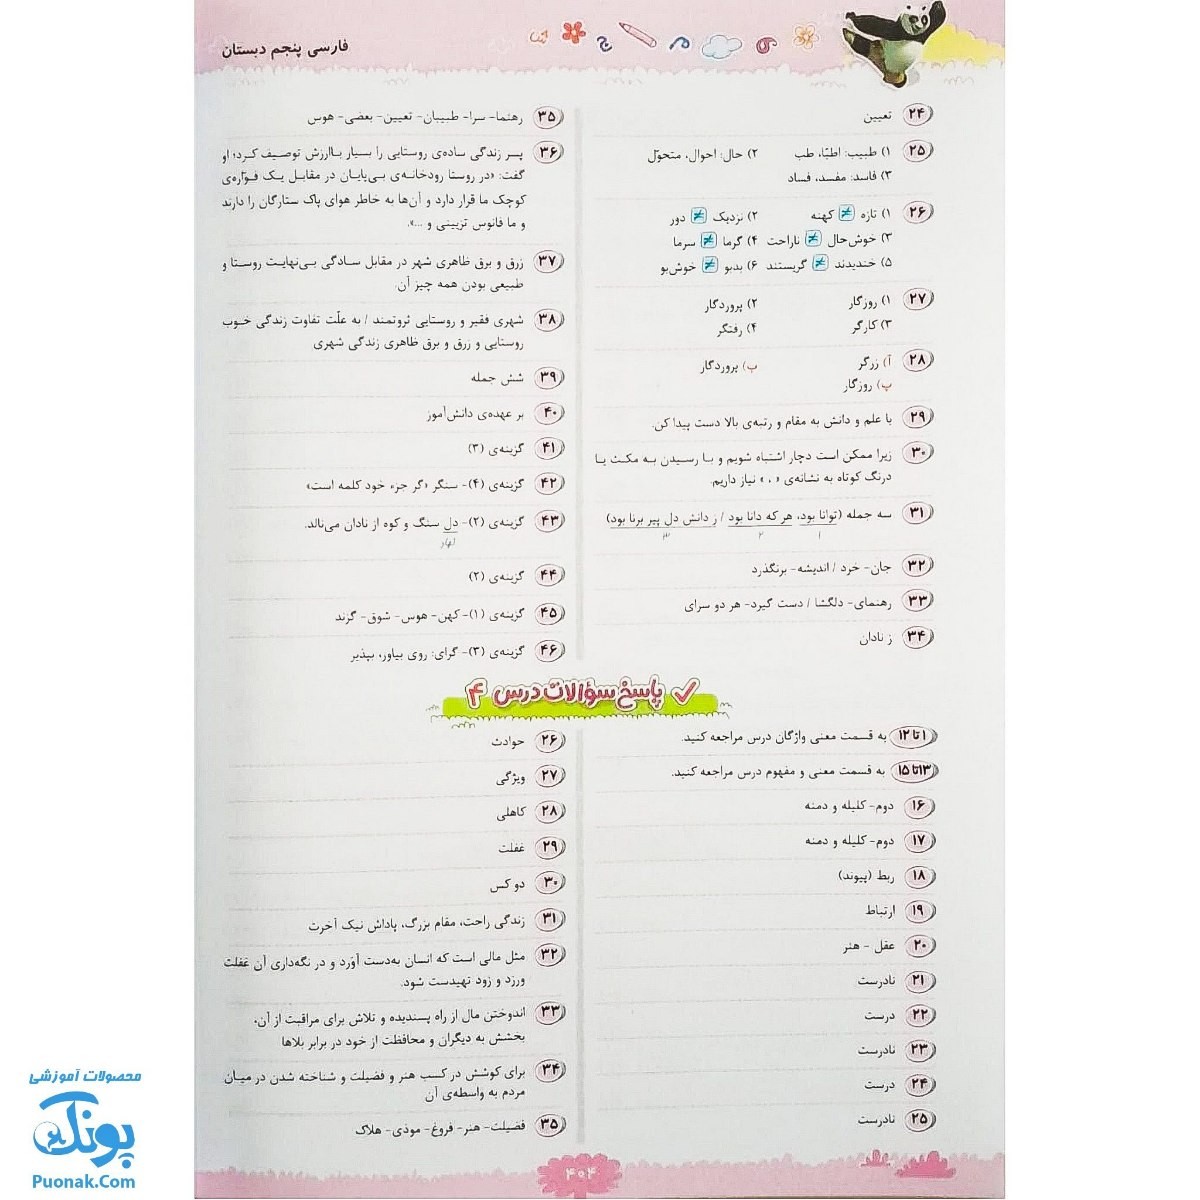 فارسی پنجم دبستان
۲۴ تعیین
۲۵ ۱) طبیب: اطبّا، طب ۲) حال: احوال، متحوّل
۳) فاسد: مفسد، فساد
۲۶ ۱) تازه ≠ کهنه ۲) نزدیک ≠ دور
۳) خوش‌حال ≠ ناراحت ۴) گرما ≠ سرما
۵) خندیدند ≠ گریستند ۶) بدبو ≠ خوش‌بو
۲۷ ۱) روزگار ۲) پروردگار
۳) کارگر ۴) رفتگر
۲۸ آ) زرگر ب) پروردگار
پ) روزگار
۲۹ با علم و دانش به مقام و رتبه‌ی بالا دست پیدا کن.
۳۰ زیرا ممکن است دچار اشتباه شویم و با رسیدن به مکث یا
درنگ کوتاه به نشانه‌ی « ، » نیاز داریم.
۳۱ سه جمله (توانا بود، هر که دانا بود / ز دانش دل پیر برنا بود)
۱ ۲ ۳
۳۲ جان- خرد / اندیشه- برنگذرد
۳۳ رهنمای- دلگشا / دست گیرد- هر دو سرای
۳۴ ز نادان
۳۵ رهنما- سرا- طبیبان- تعیین- بعضی- هوس
۳۶ پسر زندگی ساده‌ی روستایی را بسیار باارزش توصیف کرد؛ او
گفت: «در روستا رودخانه‌ی بی‌پایان در مقابل یک فوّاره‌ی
کوچک ما قرار دارد و آن‌ها به خاطر هوای پاک ستارگان را دارند
و ما فانوس تزیینی و ...».
۳۷ زرق و برق ظاهری شهر در مقابل سادگی بی‌نهایت روستا و
طبیعی بودن همه چیز آن.
۳۸ شهری فقیر و روستایی ثروتمند / به علّت تفاوت زندگی خوب
روستایی و زرق و برق ظاهری زندگی شهری
۳۹ شش جمله
۴۰ بر عهده‌ی دانش‌آموز
۴۱ گزینه‌ی (۳)
۴۲ گزینه‌ی (۴)- سنگر «گر جزء خود کلمه است»
۴۳ گزینه‌ی (۲)- دل سنگ و کوه از نادان می‌نالد.
نهاد
۴۴ گزینه‌ی (۲)
۴۵ گزینه‌ی (۱)- کهن- هوس- شوق- گزند
۴۶ گزینه‌ی (۳)- گرای: روی بیاور، بپذیر
پاسخ سؤالات درس ۴
۱ تا ۱۲ به قسمت معنی واژگان درس مراجعه کنید.
۱۳ تا ۱۵ به قسمت معنی و مفهوم درس مراجعه کنید.
۱۶ دوم- کلیله و دمنه
۱۷ دوم- کلیله و دمنه
۱۸ ربط (پیوند)
۱۹ ارتباط
۲۰ عقل - هنر
۲۱ نادرست
۲۲ درست
۲۳ نادرست
۲۴ درست
۲۵ نادرست
۲۶ حوادث
۲۷ ویژگی
۲۸ کاهلی
۲۹ غفلت
۳۰ دو کس
۳۱ زندگی راحت، مقام بزرگ، پاداش نیک آخرت
۳۲ مثل مالی است که انسان به‌دست آوَرد و در نگه‌داری آن غفلت
ورزد و زود تهیدست شود.
۳۳ اندوختن مال از راه پسندیده و تلاش برای مراقبت از آن،
بخشش به دیگران و محافظت از خود در برابر بلاها
۳۴ برای کوشش در کسب هنر و فضیلت و شناخته شدن در میان
مردم به واسطه‌ی آن
۳۵ فضیلت- هنر- فروغ- موذی- هلاک
۴۰۴
محصولات آموزشی
پونک
Puonak.Com